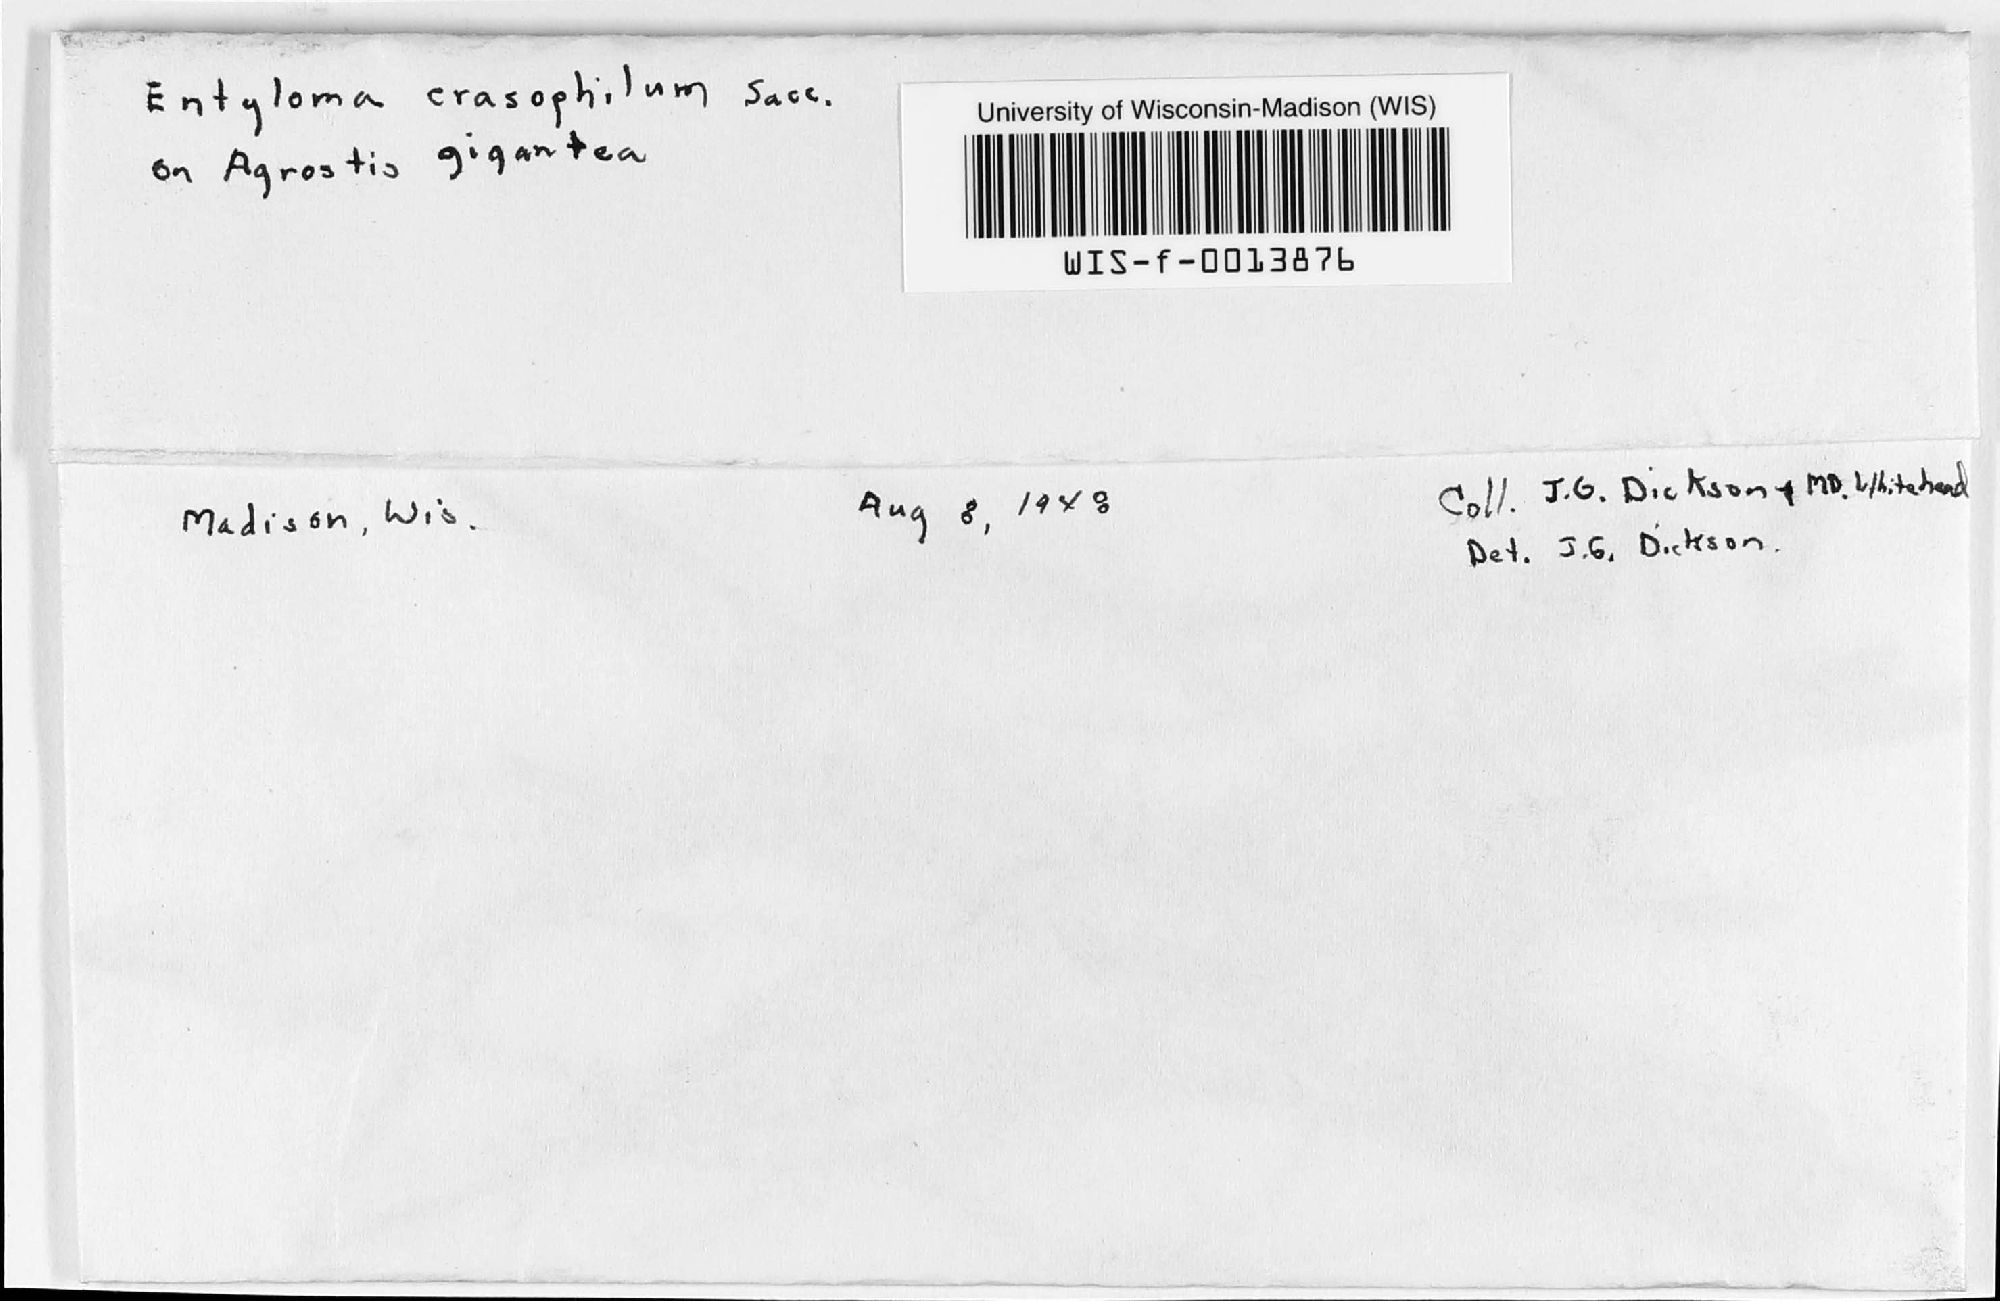 Entyloma crasophilum Sacc.
on Agrostis gigantea
University of Wisconsin-Madison (WIS)
WIS-f-0013876
Madison, Wis.
Aug 8, 1948
Coll. J.G. Dickson & MD. Whitehead
Det. J.G. Dickson.